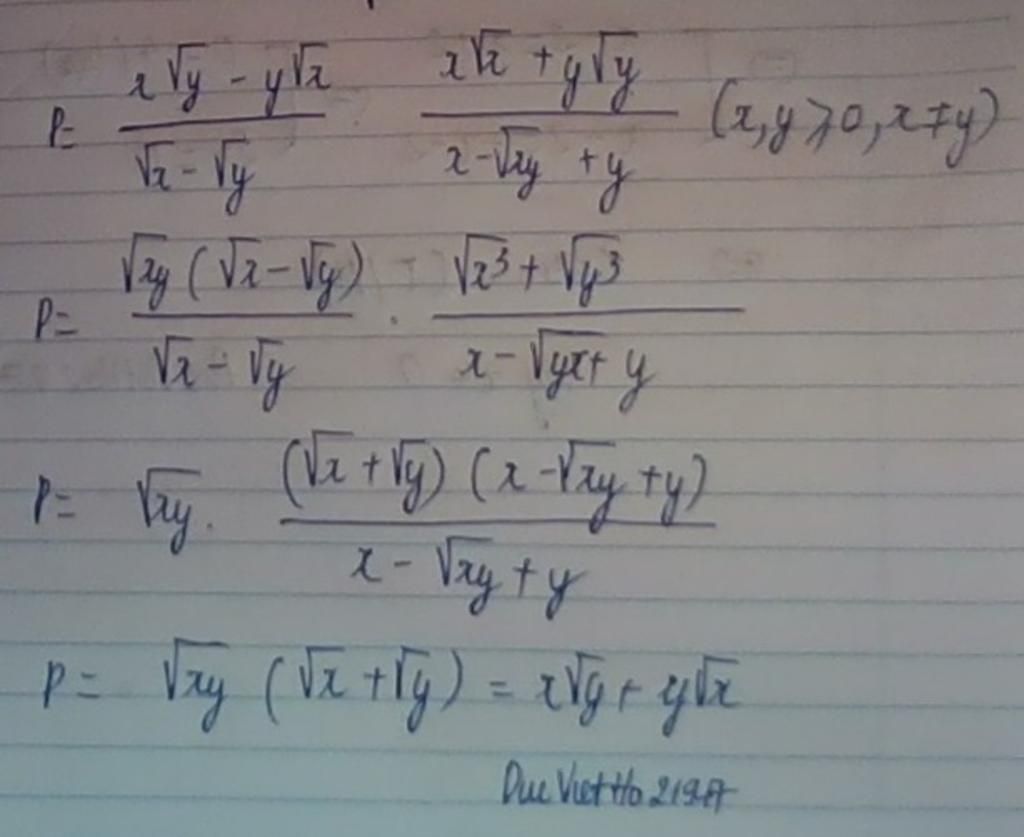 P= x√y - y√x / √x - √y · x√x + y√y / x-√xy + y (x,y ⩾ 0, x ≠ y)
P= √xy (√x - √y) / √x - √y . √x³ + √y³ / x - √yx + y
P= √xy . (√x + √y) (x - √xy + y) / x - √xy + y
P= √xy (√x + √y) = x√y + y√x